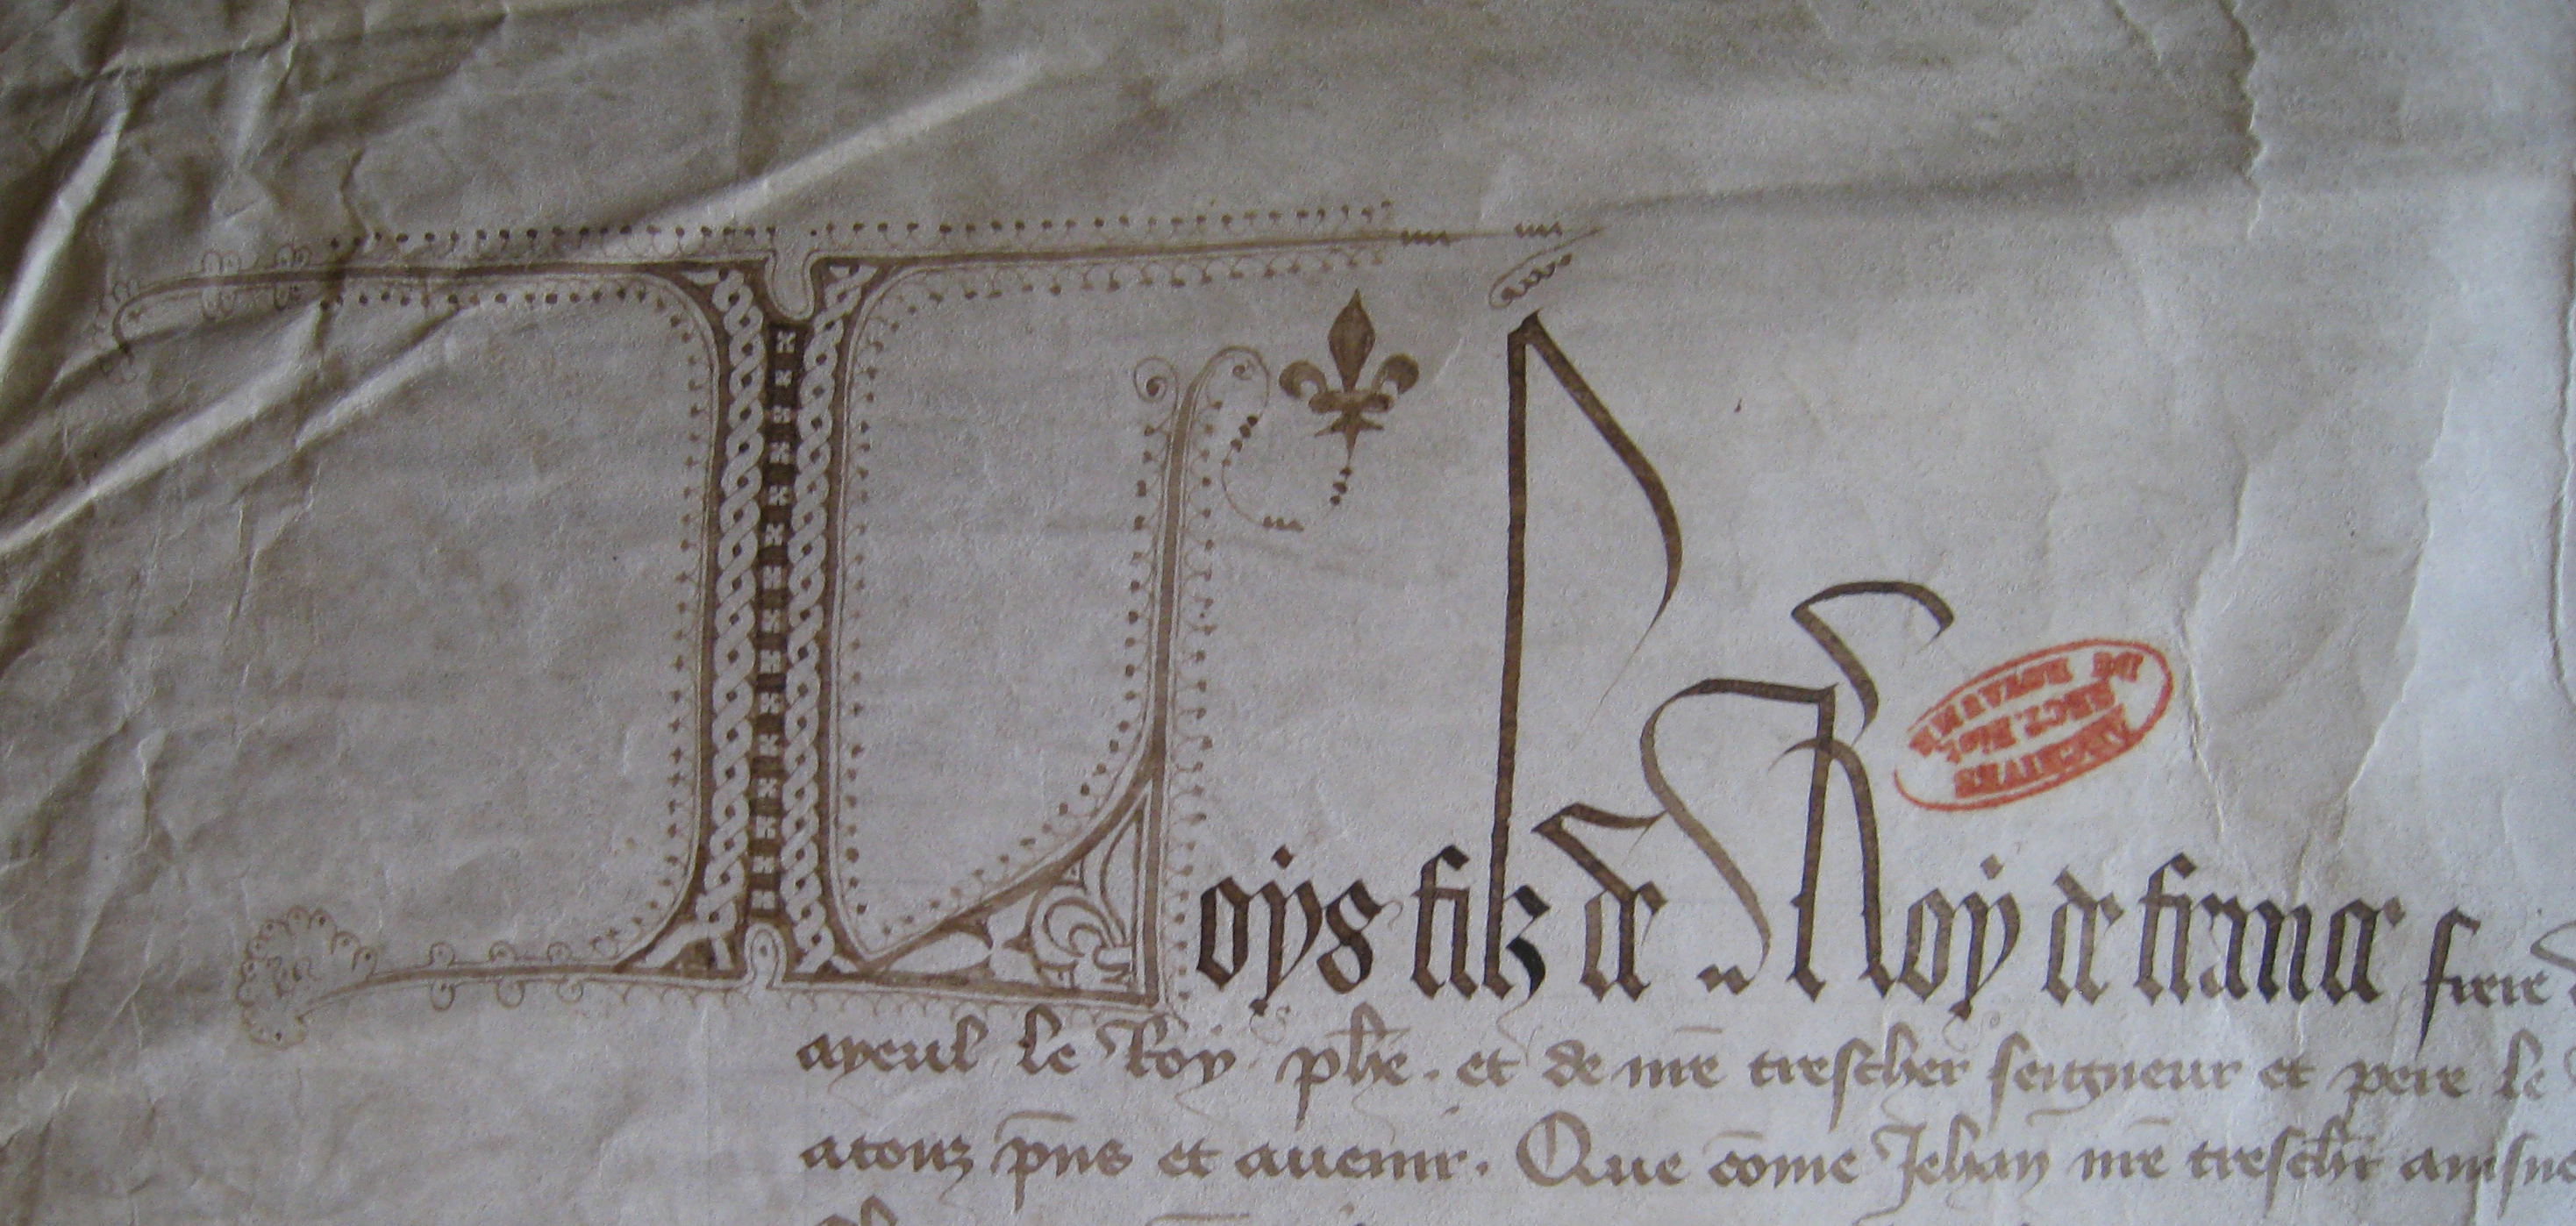 Loys filz de Roy de france frere
ayeul le Roy phe. et de nre trescher seigneur et pere le
atouz pns et auenir. Que come Jehan nre trescher ainsne
ARCHIVES
SECT. HIST.
DU ROYAUME